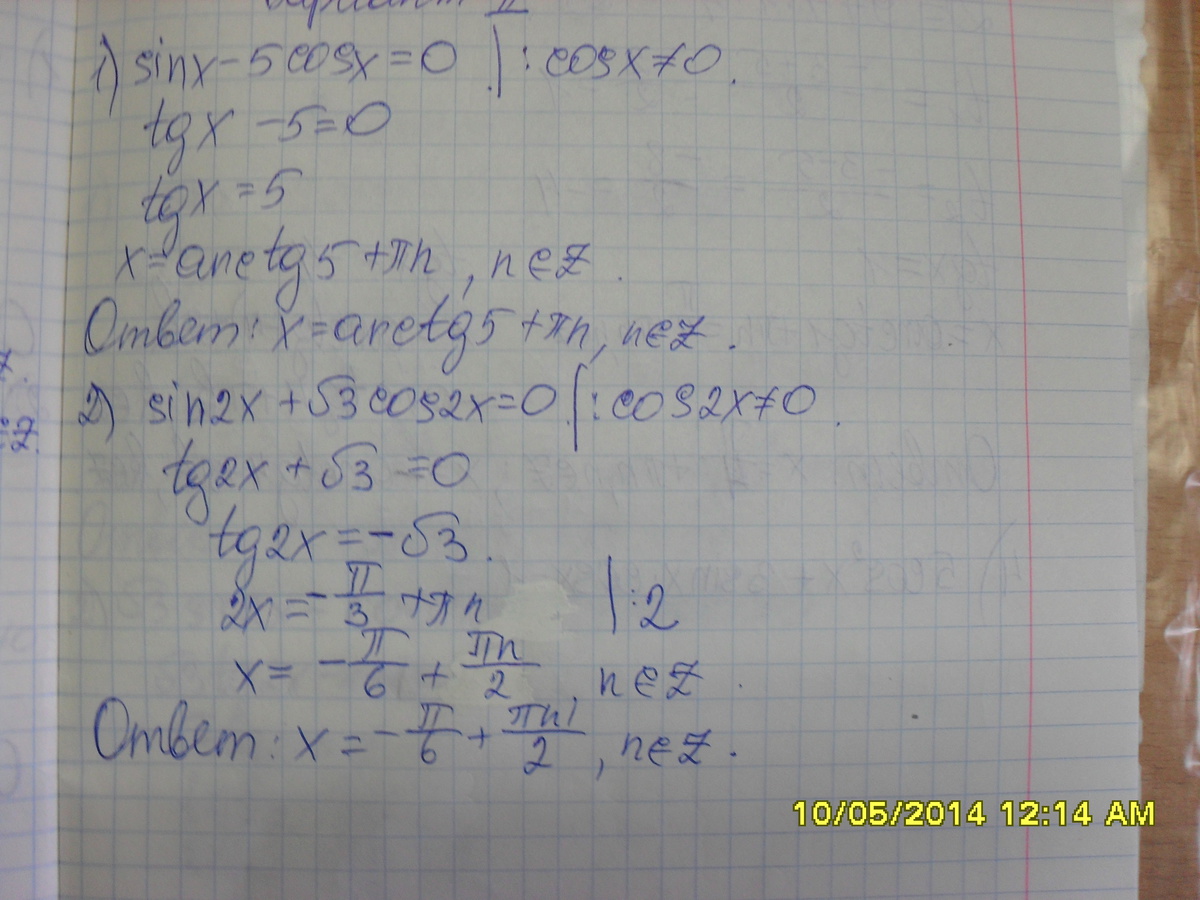 вариант II
1) sinx - 5cosx = 0 | : cosx ≠ 0.
tgx - 5 = 0
tgx = 5
x = arctg5 + πn, n ∈ Z.
Ответ: x = arctg5 + πn, n ∈ Z.
2) sin2x + √3cos2x = 0 | : cos2x ≠ 0.
tg2x + √3 = 0
tg2x = -√3.
2x = -π/3 + πn | : 2
x = -π/6 + πn/2, n ∈ Z.
Ответ: x = -π/6 + πn/2, n ∈ Z.
10/05/2014 12:14 AM